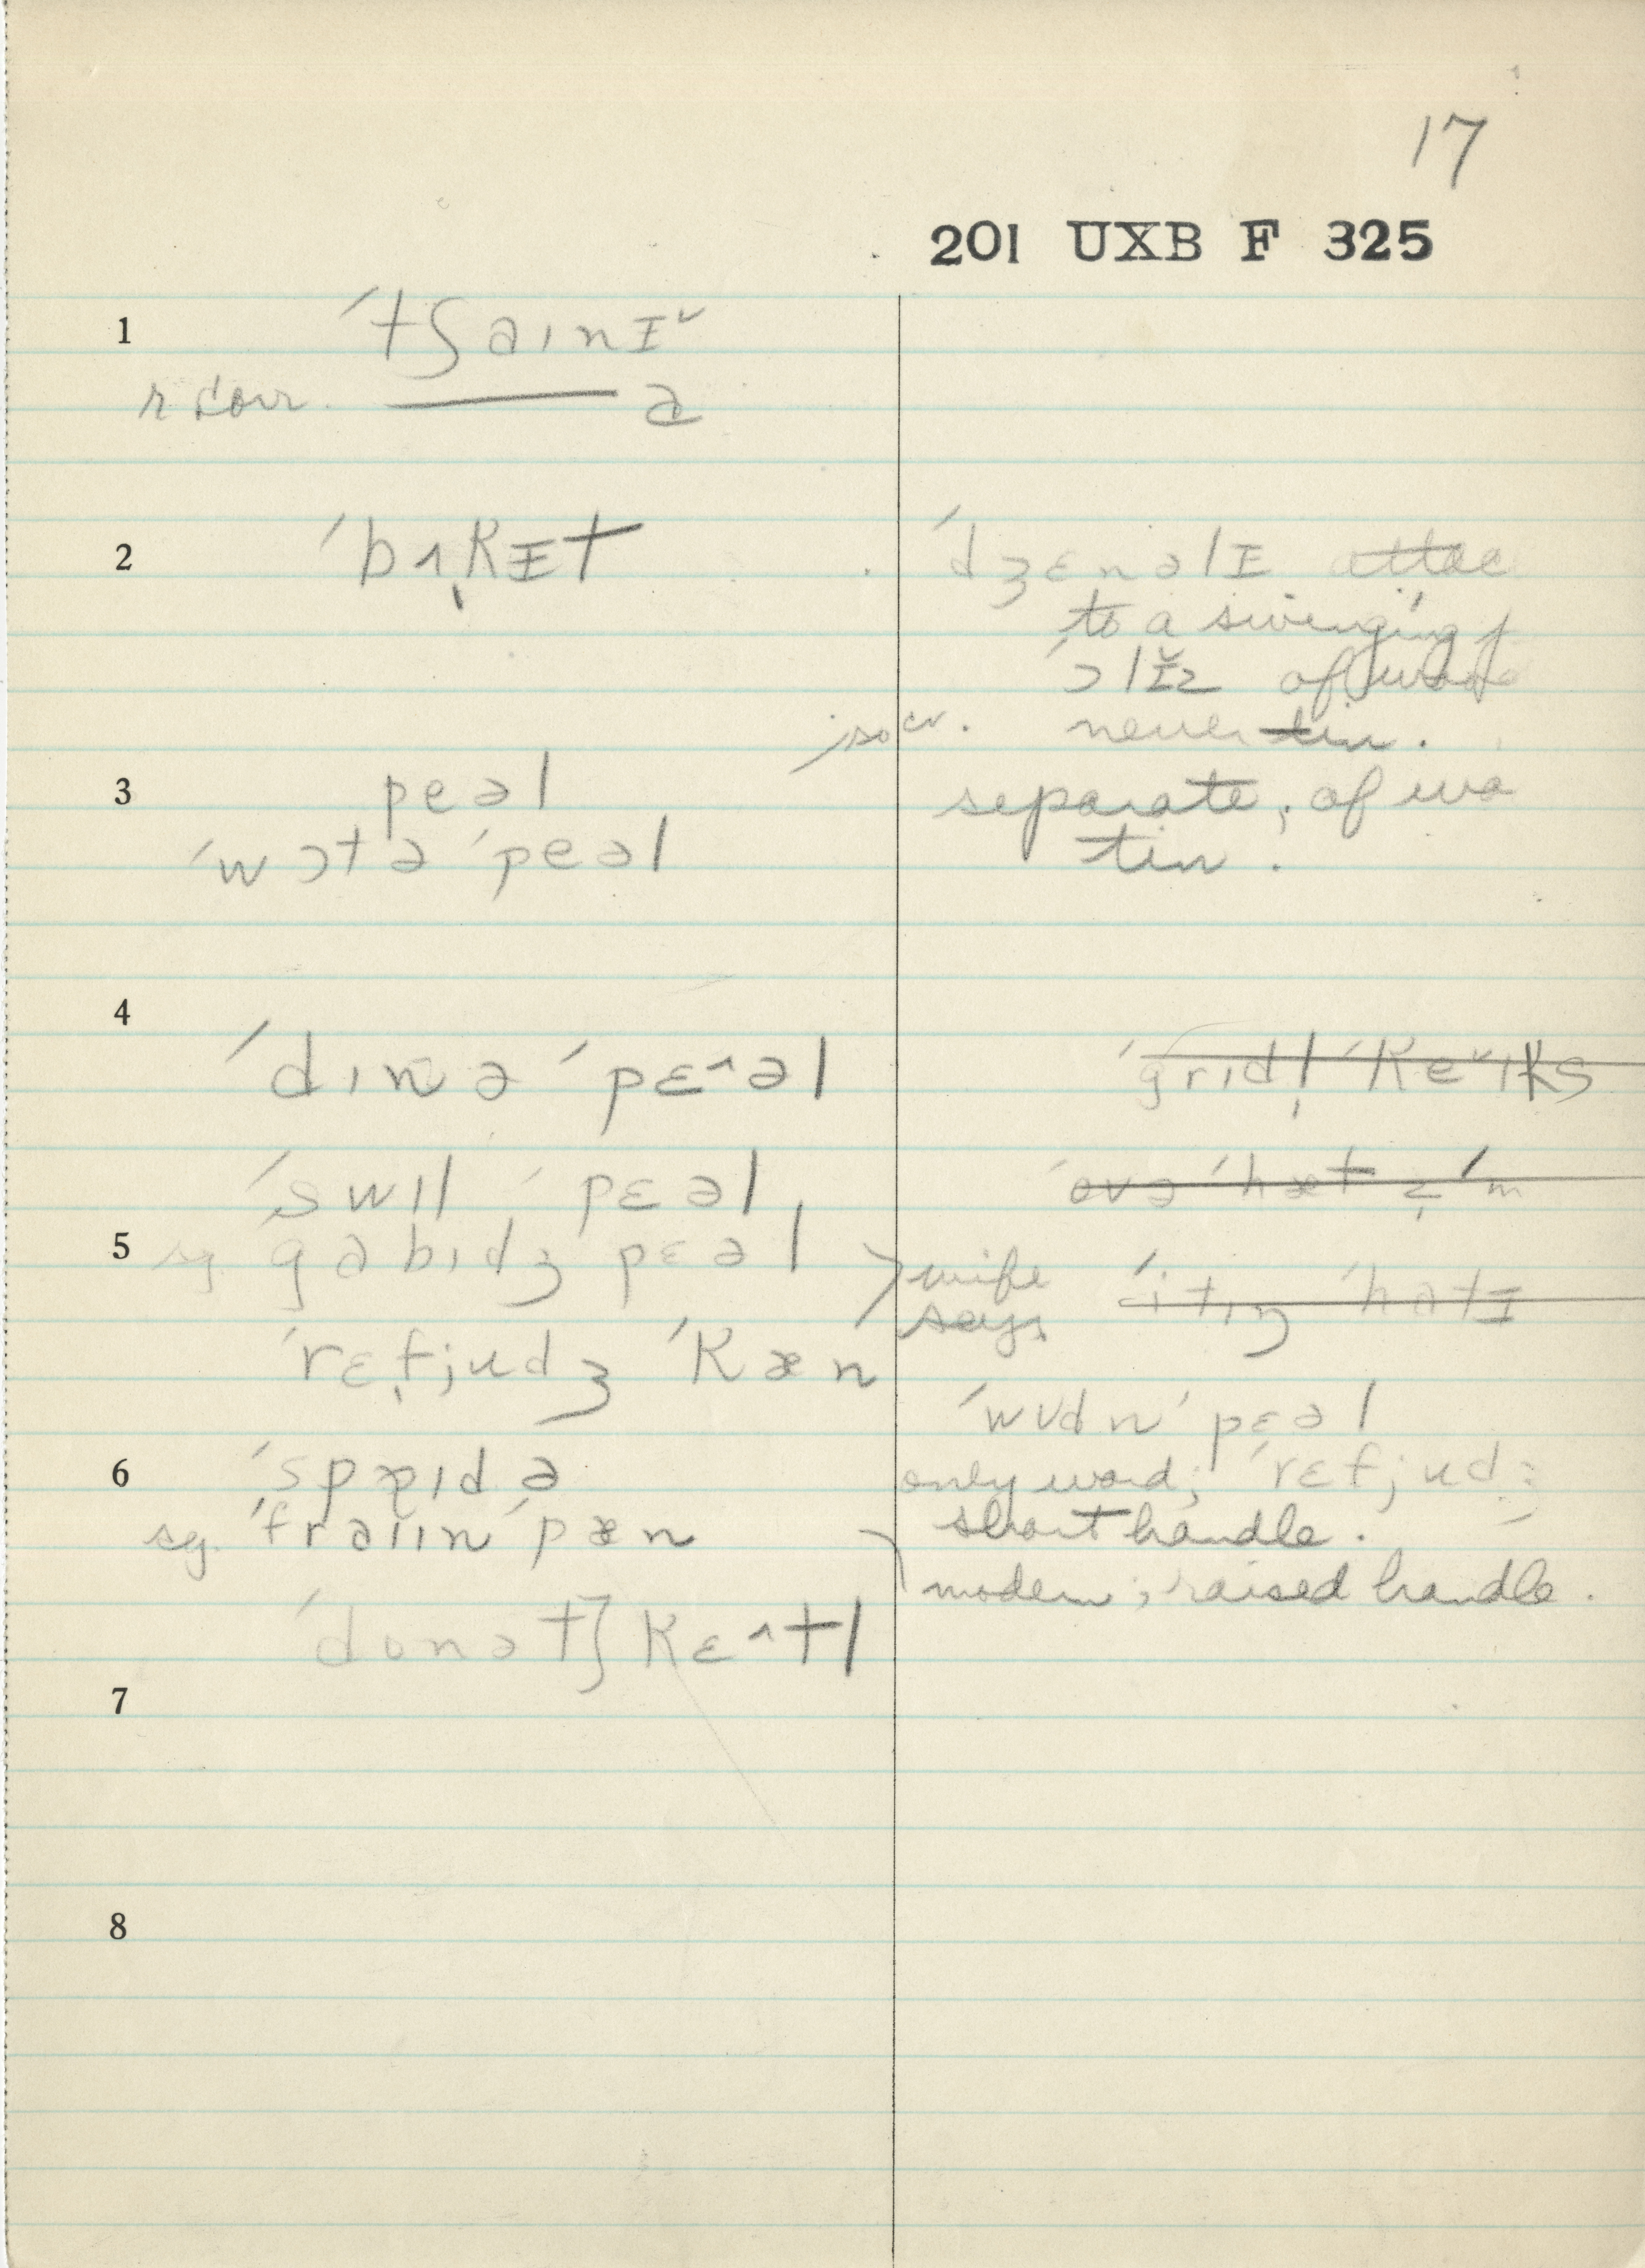 17
201 UXB F 325
1 ˈtʃainɪ˅
r corr. —— ə
2 ˈbʌ̩kɪt
ˈdʒɛnəlɪ attac
to a swinging
ˈɔlɪ̆z of
never tin.
3 peəl
separate; of
ˈwɔtə ˈpeəl
tin.
4
ˈdɪnə ˈpɛ^əl
ˈgrɪdl̩ ˈke˅ɪks
ˈswɪl ˈpɛəl
ˈovə ˈhæt
5 sg. gabɪdʒ pɛəl
wife
says
ˈrɛfjudʒ ˈkæn
ˈwʊdn ˈpɛəl
6 ˈspaɪdə
only word; ˈrɛfjud
sg. ˈfraɪɪn ˈpæn
short handle.
modern; raised handle.
ˈdonətʃ kɛ^tl
7
8